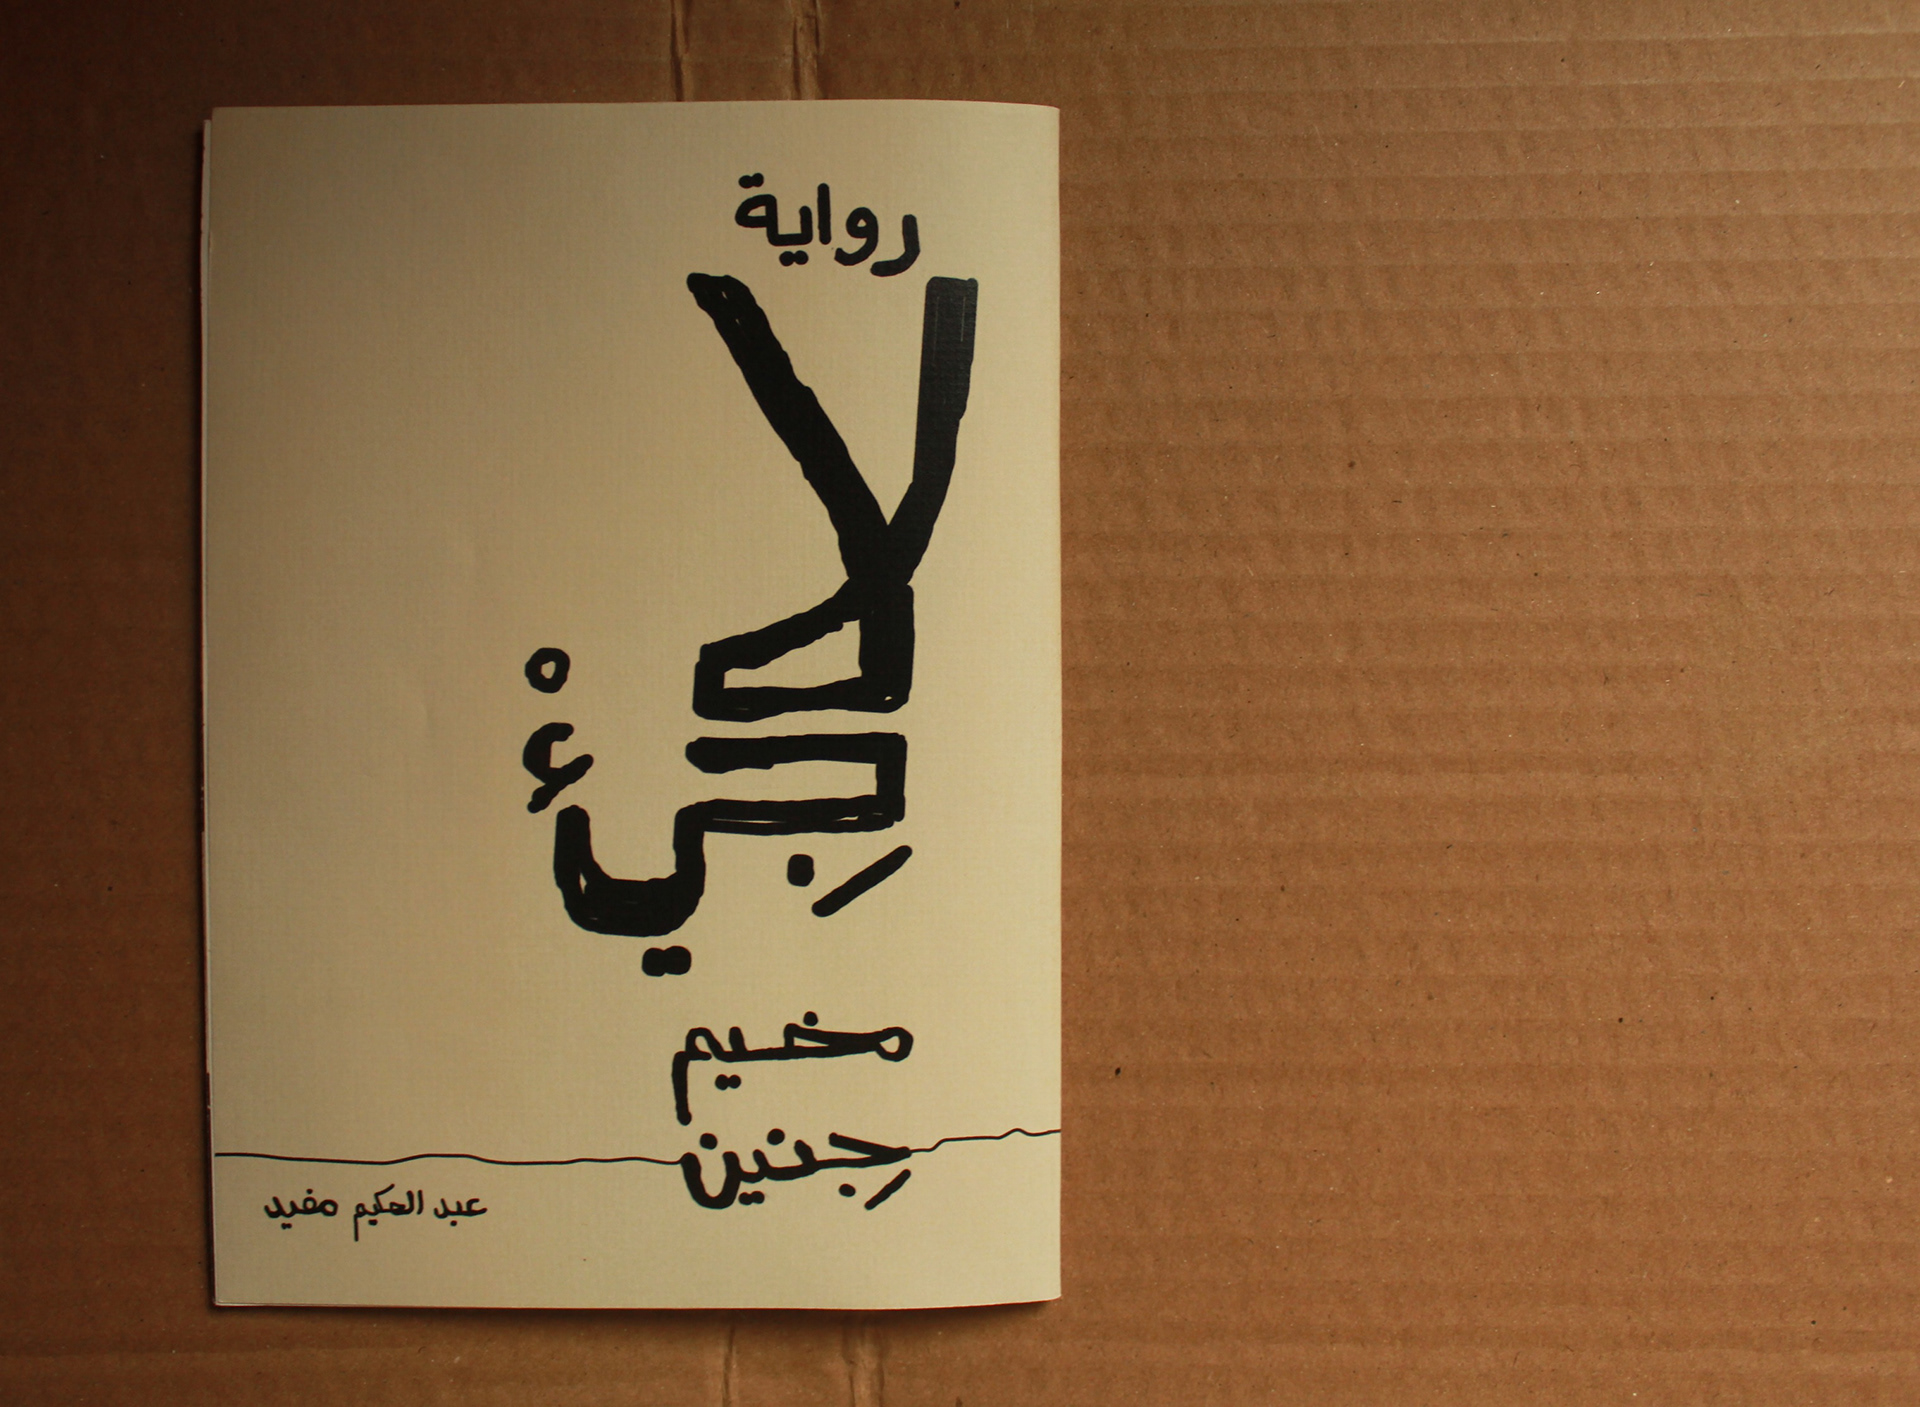 رواية
لاجِئْ
مخيم
جِنين
عبد الحكيم مفيد